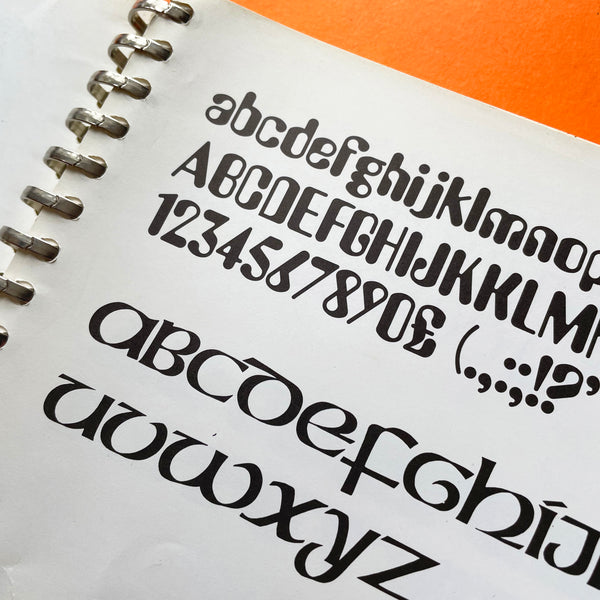 abcdefghijklmnop
ABCDEFGHIJKKLM
1234567890£ (.,:;!?'
ABCDEFGHIJ
UVWXYZ